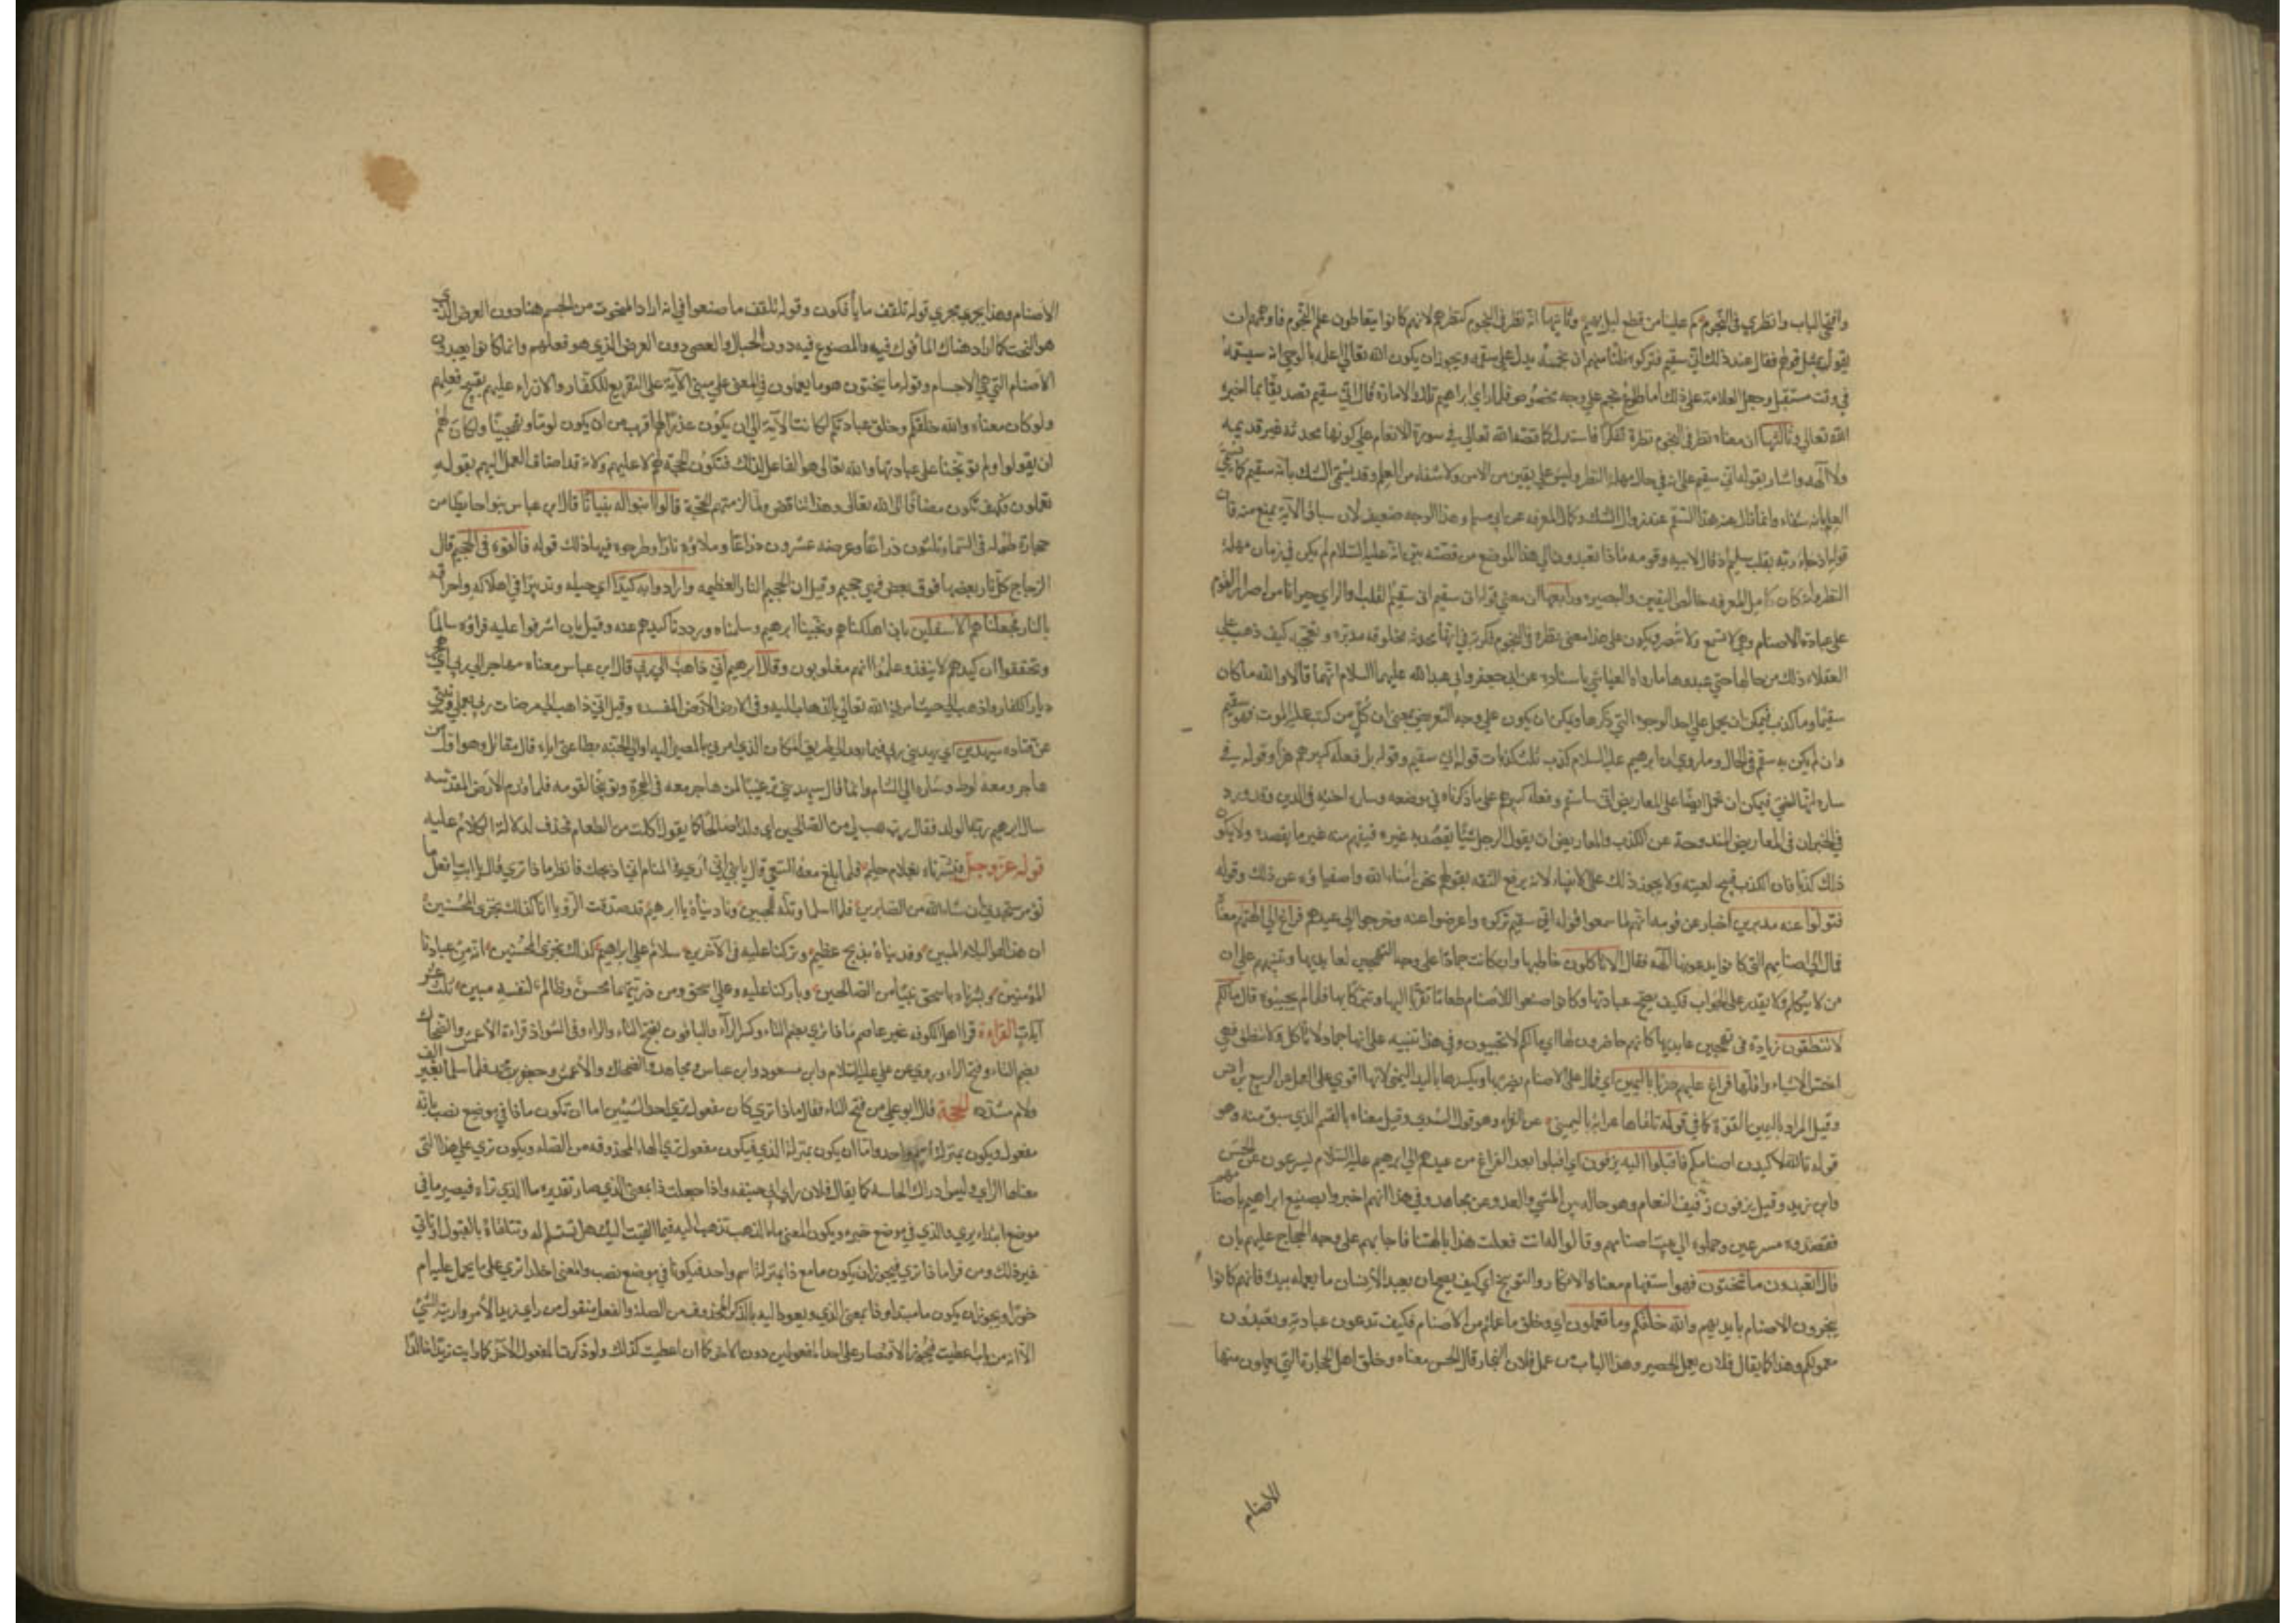 وافتحي الباب وانظري في النجوم كم علينا من قطع ليل بهيم وثانيها انه نظر في النجوم كنظرهم لانهم كانوا يتعاطون علم النجوم فاوهمهم انه
يقول بمثل قولهم فقال عند ذلك اني سقيم فتركوه ظنا منهم ان نجمه يدل على سقمه ويجوز ان يكون الله تعالى اعلمه بالوحي انه سيسقمه
في وقت مستقبل وجعل العلامة على ذلك اما طلوع نجم على وجه مخصوص فلما راي ابراهيم تلك الامارة قال اني سقيم تصديقا بما اخبره
الله تعالى وثالثها ان معناه نظر في النجوم نظرة تفكر فاستدل كما قصه الله تعالى في سورة الانعام على كونها محدثة غير قديمه
ولا آلهه واشار بقوله اني سقيم على انه في حال مهلة النظر وليس على يقين من الامر ولا شفاء من العلم وقد يسمى الشك بانه سقيم كما يسمى
العلم بانه شفاء وانما زال عنه هذا السقم عند زوال الشك وكمال المعرفه عن ابي مسلم وهذا الوجه ضعيف لان سياق الآية يمنع منه فان
قوله اذ جاء ربه بقلب سليم اذ قال لابيه وقومه ماذا تعبدون الى هذا الموضع من قصته يبين انه عليه السلام لم يكن في زمان مهلة
النظر وانه كان كامل المعرفه خالص اليقين والبصيره ورابعها ان معنى قوله اني سقيم اني سقيم القلب او الراي حزنا من اصرار القوم
على عبادة الاصنام وهي لا تسمع ولا تبصر ويكون على هذا معنى نظره في النجوم فكرته في انها محدثة مخلوقه مدبره وتعجبه كيف ذهب على
العقلاء ذلك من حالها حتى عبدوها وما رواه العياشي باسناده عن ابي جعفر وابي عبد الله عليهما السلام انهما قالا والله ما كان
سقيما وما كذب فيمكن ان يحمل على احد الوجوه التي ذكرها ويمكن ان يكون على وجه التعريض بمعنى ان كل من كتب عليه الموت فهو سقيم
وان لم يكن به سقم في الحال وما روي ان ابراهيم عليه السلام كذب ثلث كذبات قوله اني سقيم وقوله بل فعله كبيرهم هذا وقوله في
ساره انها اختي فيمكن ان تحمل ايضا على المعاريض اني ساسقم وفعله كبيرهم على ما ذكرناه في موضعه وساره اخته في الدين وقد ورد
في الخبر ان في المعاريض لمندوحة عن الكذب والمعاريض ان يقول الرجل شيئا يقصد به غيره فيفهم منه غير ما يقصده ولا يكون
ذلك كذبا فان الكذب قبيح لعينه ولا يجوز ذلك على الانبياء لانه يرفع الثقه بقولهم نحن امناء الله واصفياؤه عن ذلك وقوله
فتولوا عنه مدبرين اخبار عن قومه انهم لما سمعوا قوله اني سقيم تركوه واعرضوا عنه وخرجوا الى عيدهم فراغ الى آلهتهم معناه
فمال الى اصنامهم التي كانوا يدعونها آلهه فقال الا تاكلون خاطبها وان كانت جمادا على وجه التهجين لعابديها وتنبيههم على ان
من لا يتكلم ولا يقدر على الجواب فكيف يصح عبادتها وكانوا صنعوا للاصنام طعاما تقربا اليها وتبركا بها فلما لم يجيبوه قال ما لكم
لا تنطقون زيادة في تهجين عابديها كانهم حاضرون لها اي ما لكم لا تجيبون وفي هذا تنبيه على انها جماد لا تاكل ولا تنطق فهي
اخس الاشياء واقلها فراغ عليهم ضربا باليمين اي فمال على الاصنام يضربها ويكسرها باليد اليمنى لانها اقوى على العمل عن الربيع بن انس
وقيل المراد باليمين القوة كما في قوله تلقاها عرابة باليمين عن الفراء وهو قول السدي وقيل معناه بالقسم الذي سبق منه وهو
قوله تالله لاكيدن اصنامكم فاقبلوا اليه يزفون اي اقبلوا بعد الفراغ من عيدهم الى ابراهيم عليه السلام يسرعون عن الحسن
وابن زيد وقيل يزفون زفيف النعام وهو حاله بين المشي والعدو عن مجاهد وفي هذا انهم اخبروا بصنيع ابراهيم باصنامهم
فقصدوه مسرعين وحملوه الى بيت اصنامهم وقالوا له انت فعلت هذا بالهتنا فاجابهم على وجه الحجاج عليهم بان
قال اتعبدون ما تنحتون فهو استفهام معناه الانكار والتوبيخ اي كيف يصح ان يعبد الانسان ما يعمله بيده فانهم كانوا
ينحتون الاصنام بايديهم والله خلقكم وما تعملون اي وخلق ما عملتم من الاصنام فكيف تدعون عبادته وتعبدون
معمولكم وهذا كما يقال فلان يعمل الحصير وهذا الباب من عمل فلان النجار قال الحسن معناه وخلق اصل الحجارة التي يعملون منها
الاصنام
الاصنام وهذا يجري مجرى قوله تلقف ما يأفكون وقوله تلقف ما صنعوا في انه اراد المنحوت من الجسم هنا دون العرض الذي
هو النحت كما اراد هناك المأفوك فيه والمصنوع فيه دون الحبال والعصي دون العرض الذي هو فعلهم وانما كانوا يعبدون
الاصنام التي هي الاجسام وقوله ما ينحتون هو ما يعملون في المعنى على مبنى الآية على التقريع للكفار والازراء عليهم بقبيح فعلهم
ولو كان معناه والله خلقكم وخلق عبادتكم لكانت الآية الى ان يكون عذرا لهم اقرب من ان يكون لوما وتهجينا ولكان لهم
ان يقولوا ولم توبخنا على عبادتها والله تعالى هو الفاعل لذلك فتكون الحجة لهم لا عليهم ولانه قد اضاف العمل اليهم بقوله
تعملون فكيف تكون مضافا الى الله تعالى وهذا تناقض ولما لزمتهم الحجة قالوا ابنوا له بنيانا قال ابن عباس بنوا حايطا من
حجارة طوله في السماء ثلثون ذراعا وعرضه عشرون ذراعا وملاؤه نارا وطرحوه فيها ذلك قوله فالقوه في الجحيم قال
الزجاج كل نار بعضها فوق بعض فهي جحيم وقيل ان الجحيم النار العظيمه وارادوا به كيدا اي حيله وتدبيرا في اهلاكه واحراقه
بالنار فجعلناهم الاسفلين بان اهلكناهم ونجينا ابراهيم وسلمناه ورددنا كيدهم عنه وقيل بان اشرفوا عليه فراوه سالما
وتحققوا ان كيدهم لا ينفذ وعلموا انهم مغلوبون وقال ابراهيم اني ذاهب الى ربي قال ابن عباس معناه مهاجر الى ربي اي اهجر
ديار الكفار واذهب الى حيث امرني الله تعالى بالذهاب اليه وفي الارض المقدسه وقيل اني ذاهب الى مرضات ربي بعملي ونيتي
عن قتاده سيهدين اي يهديني ربي فيما بعد الى طريق المكان الذي امرني بالمصير اليه او الى الجنه بطاعتي اياه قال مقاتل وهو اول من
هاجر ومعه لوط وساره الى الشام وانما قال سيهدين ترغيبا لمن هاجر معه في الهجرة وتوبيخا لقومه فلما قدم الارض المقدسه
سال ابراهيم ربه الولد فقال رب هب لي من الصالحين اي ولدا صالحا كما يقول اكلت من الطعام فحذف لدلالة الكلام عليه
قوله عز وجل فبشرناه بغلام حليم فلما بلغ معه السعي قال يا بني اني ارى في المنام اني اذبحك فانظر ماذا ترى قال يا ابت افعل ما
تؤمر ستجدني ان شاء الله من الصابرين فلما اسلما وتله للجبين وناديناه يا ابراهيم قد صدقت الرؤيا انا كذلك نجزي المحسنين
ان هذا لهو البلاء المبين وفديناه بذبح عظيم وتركنا عليه في الآخرين سلام على ابراهيم كذلك نجزي المحسنين انه من عبادنا
المؤمنين وبشرناه باسحق نبيا من الصالحين وباركنا عليه وعلى اسحق ومن ذريتهما محسن وظالم لنفسه مبين ثلث عشر
آيات القراءة قرا اهل الكوفه غير عاصم ماذا تري بضم التاء وكسر الراء والباقون بفتح التاء والراء وفي الشواذ قراءة الاعمش والضحاك
بضم التاء وفتح الراء وروي عن علي عليه السلام وابن مسعود وابن عباس ومجاهد والضحاك والاعمش وجعفر بن محمد فلما سلما بغير الف
ولام مشدده الحجة قال ابو علي من فتح التاء فقال ماذا ترى كان مفعول ترى احد الشيئين اما ان تكون ما ذا في موضع نصب بانه
مفعول ويكون بمنزلة اسم واحد واما ان يكون بمنزلة الذي فيكون مفعول ترى الهاء المحذوفه من الصله ويكون ترى على هذا التي
معناها الراي وليس ادراك الحاسه كما يقال فلان يرى راي ابي حنيفه واذا جعلت ذا بمعنى الذي صار تقديره ما الذي تراه فيصير ما في
موضع ابتداء والذي في موضع خبره ويكون المعنى ما الذي تذهب اليه فيما القيت اليك هل تستسلم له وتتلقاه بالقبول او تاتي
غير ذلك ومن قرا ماذا تري فيجوز ان يكون ما مع ذا بمنزلة اسم واحد فيكونا في موضع نصب والمعنى اجلدا تري على ما يحمل عليه ام
خورا ويجوز ان يكون ما مبتدا وذا بمعنى الذي ويعود اليه الذكر المحذوف من الصلة والفعل منقول من راى زيد الامر واريته الشيء
الا انه من باب اعطيت فيجوز الاقتصار على احد المفعولين دون الآخر كما ان اعطيت كذلك ولو ذكرت المفعول الآخر كان اريت زيدا خالدا